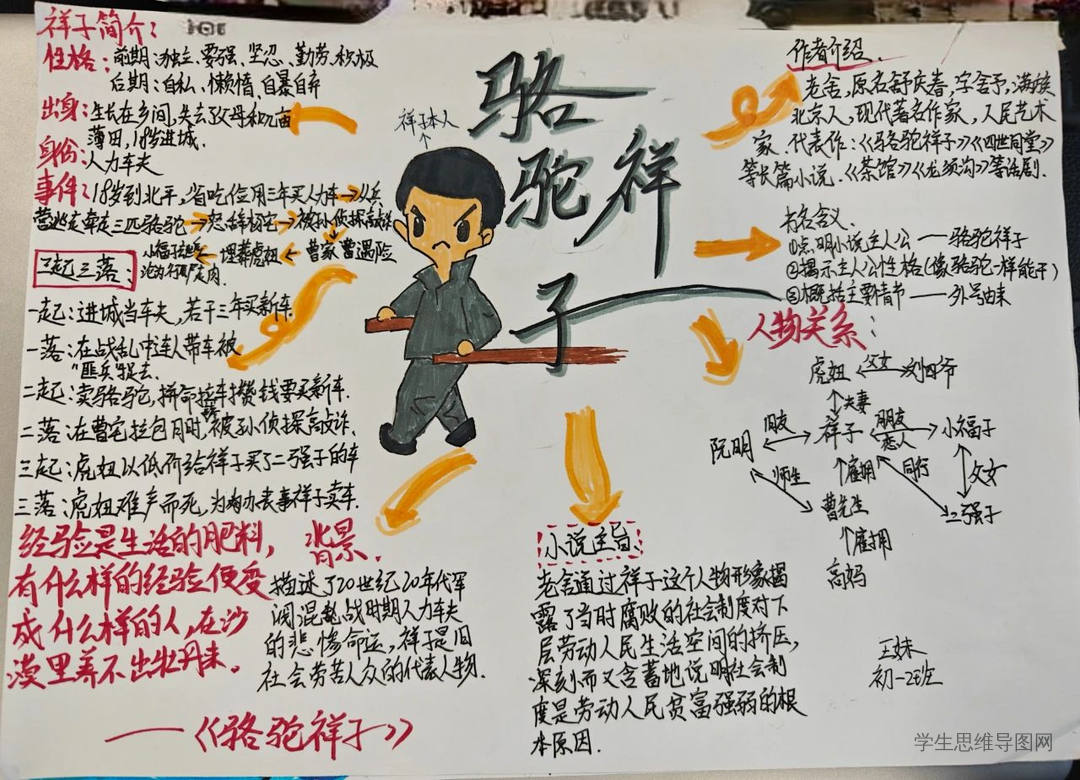 祥子简介:
性格:前期:独立、要强、坚忍、勤劳、积极
后期:自私、懒惰、自暴自弃
出身:生长在乡间,失去父母和几亩
薄田,18岁进城.
身份:人力车夫
事件:18岁到北平,省吃俭用三年买人力车→从兵
营逃走牵走三匹骆驼→怒辞杨宅→被孙侦探敲诈
小福子
埋葬虎妞←曹家曹遇险
三起三落:
一起:进城当车夫,若干三年买新车.
一落:在战乱中连人带车被
"匪兵"捉去.
二起:卖骆驼,拼命拉车攒钱要买新车.
二落:在曹宅拉包月时,被孙侦探敲诈.
三起:虎妞以低价给祥子买了二强子的车
三落:虎妞难产而死,为办丧事祥子卖车.
经验是生活的肥料,
有什么样的经验便变
成什么样的人,在沙
漠里养不出牡丹来.
——《骆驼祥子》
骆
驼
祥
子
祥子本人
背景.
描述了20世纪20年代军
阀混乱战时期人力车夫
的悲惨命运,祥子是旧
社会劳苦人众的代表人物.
小说主旨.
老舍通过祥子这个人物形象揭
露了当时腐败的社会制度对下
层劳动人民生活空间的挤压,
深刻而又含蓄地说明社会制
度是劳动人民贫富强弱的根
本原因.
作者介绍.
老舍,原名舒庆春,字舍予,满族
北京人,现代著名作家,人民艺术
家.代表作:《骆驼祥子》《四世同堂》
等长篇小说.《茶馆》《龙须沟》等话剧.
书名含义.
①点明小说主人公——骆驼祥子
②揭示主人公性格(像骆驼一样能干)
③概括主要情节——外号由来
人物关系:
虎妞 父女 刘四爷
夫妻
阮明 旧友 祥子 朋友 恋人 小福子
师生 雇拥 同行 父女
曹先生 二强子
雇拥
高妈
王妹
初一2班
学生思维导图网